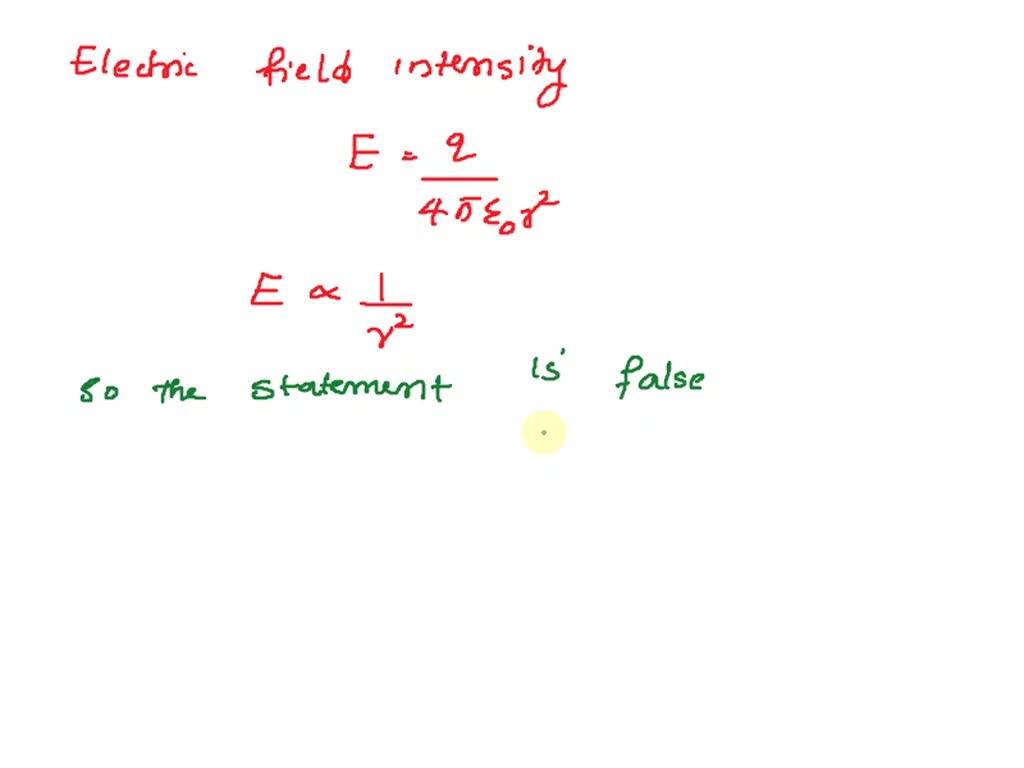 Electric field intensity
E = q / 4πε₀r²
E ∝ 1 / r²
So the statement is false